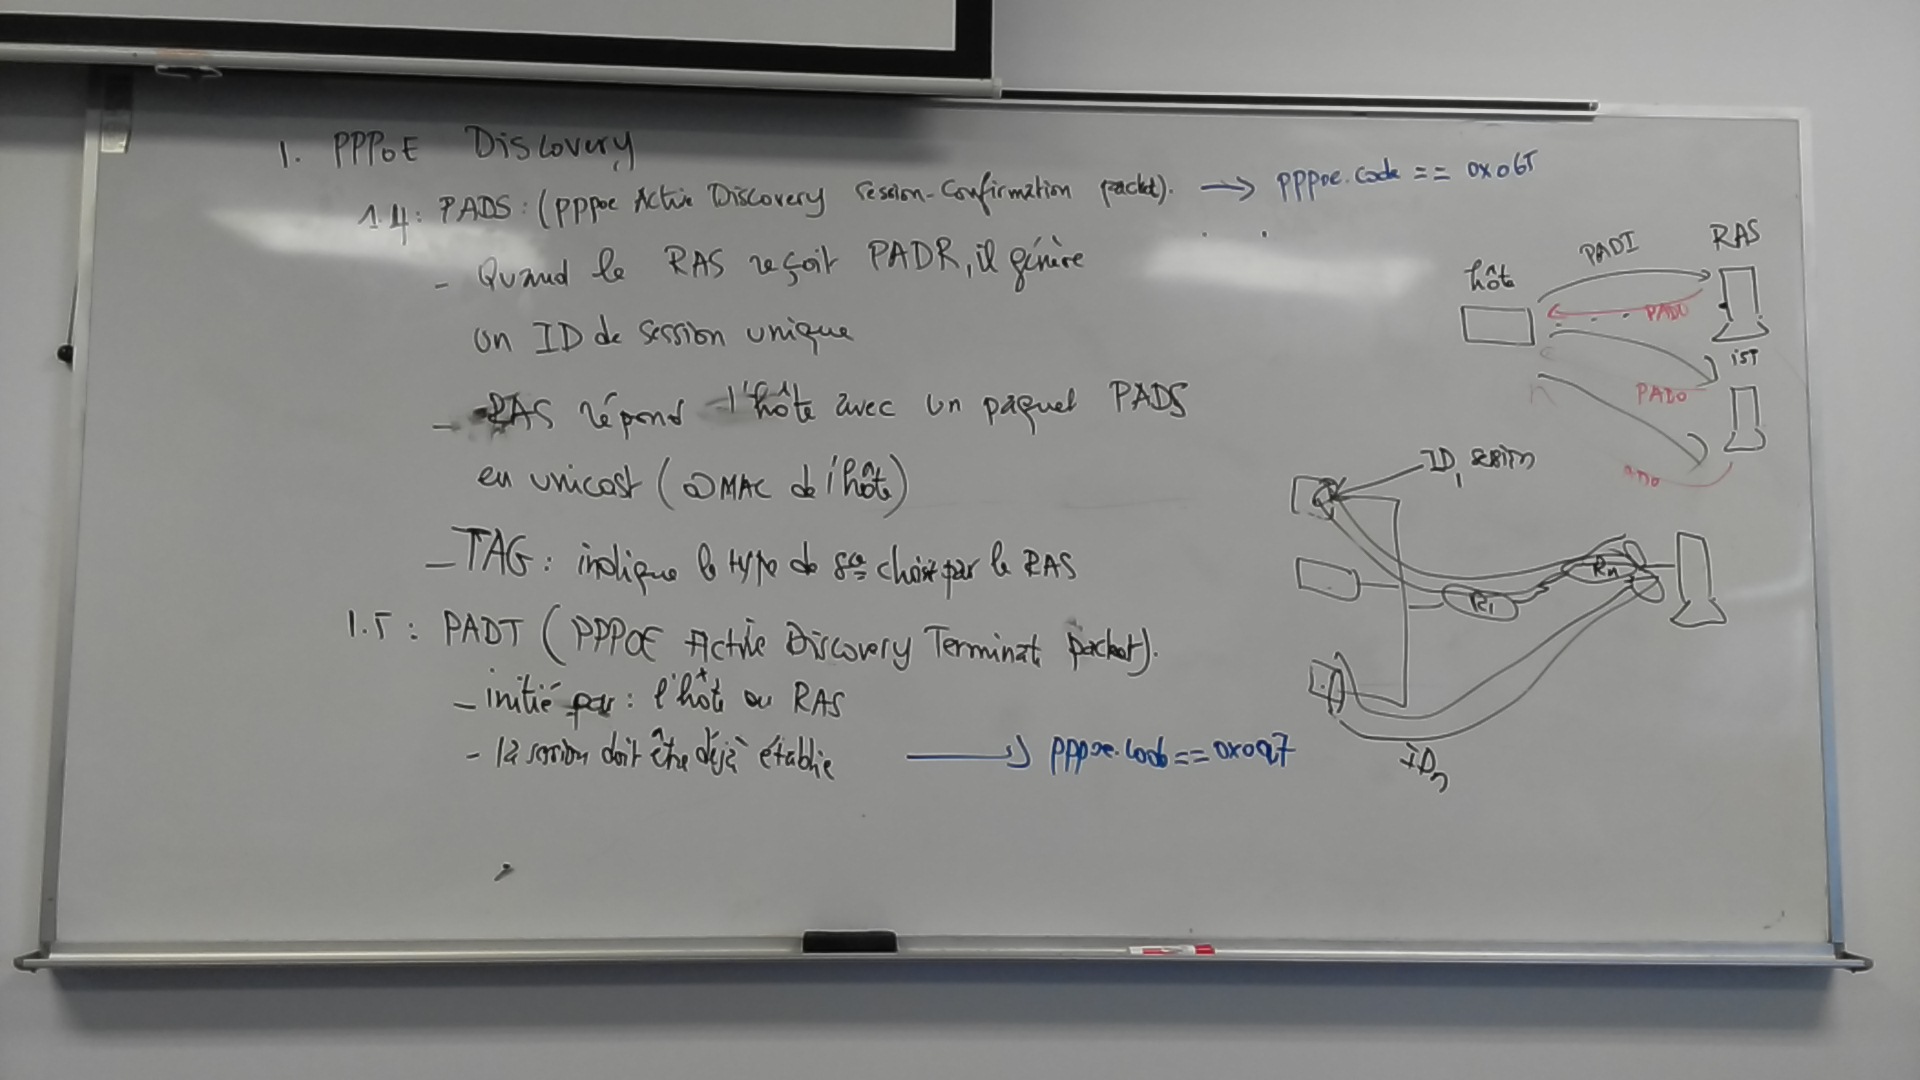 1. PPPoE Discovery
1.4: PADS: (PPPoe Active Discovery Session-Confirmation packet). → pppoe.code == 0x065
- Quand le RAS reçoit PADR, il génère
un ID de session unique
- RAS répond l'hôte avec un paquet PADS
en unicast (@MAC de l'hôte)
- TAG: indique le type de sce choisi par le RAS
1.5: PADT (PPPOE Active Discovery Terminat packet).
- initié par: l'hôte ou RAS
- la session doit être déjà établie → pppoe.code == 0x0a7
PADI
RAS
hôte
PADO
PADO
ADO
ID1 session
R1
Rn
IDn